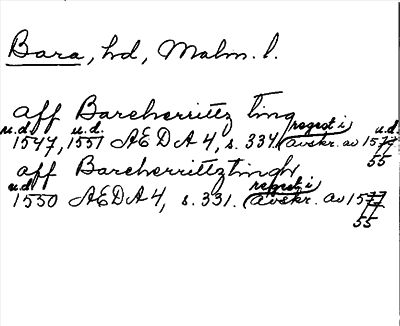 Bara, hd, Malm. l.
aff Barcherrittz ting
u.d. u.d. regest i u.d.
1547, 1551 ÆDA 4, s. 334. (Avskr. av 1577
55
aff Barcherrittztingh
u.d. regest i
1550 ÆDA 4, s. 331. (Avskr. av 1577
55